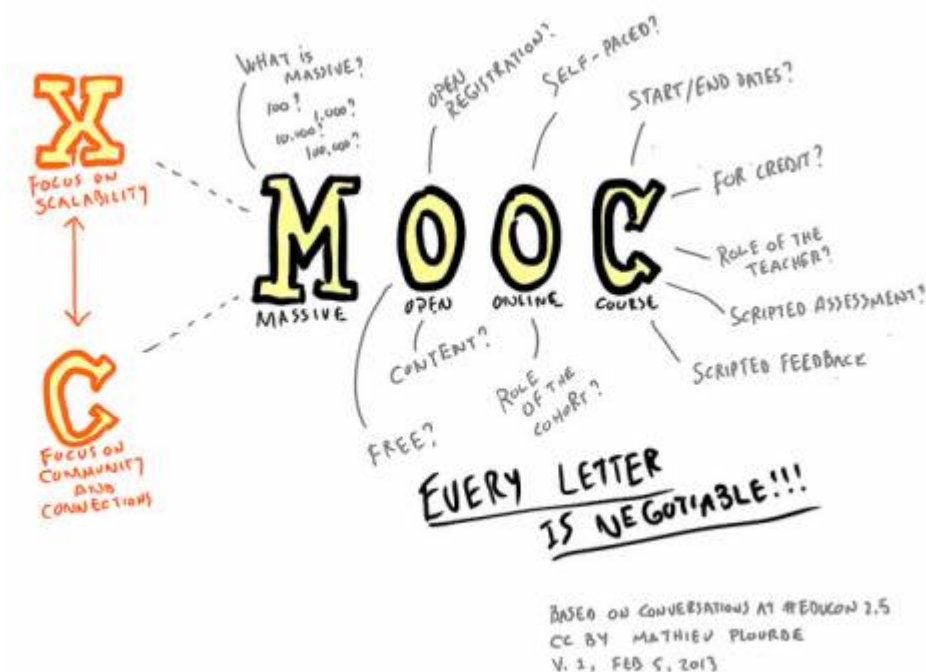 X
FOCUS ON
SCALABILITY
C
FOCUS ON
COMMUNITY
AND
CONNECTIONS
WHAT IS
MASSIVE?
100?
1,000?
10,000?
100,000?
OPEN
REGISTRATION?
SELF-PACED?
START/END DATES?
FOR CREDIT?
ROLE OF THE
TEACHER?
SCRIPTED ASSESSMENT?
SCRIPTED FEEDBACK
MOOC
MASSIVE OPEN ONLINE COURSE
FREE?
CONTENT?
ROLE
OF THE
COHORT?
EVERY LETTER
IS NEGOTIABLE!!!
BASED ON CONVERSATIONS AT #EDUCON 2.5
CC BY MATHIEU PLOURDE
V. 1, FEB 5, 2013